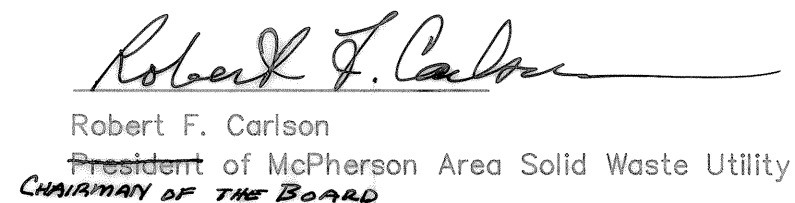 Robert F. Carlson
Robert F. Carlson
President of McPherson Area Solid Waste Utility
CHAIRMAN OF THE BOARD